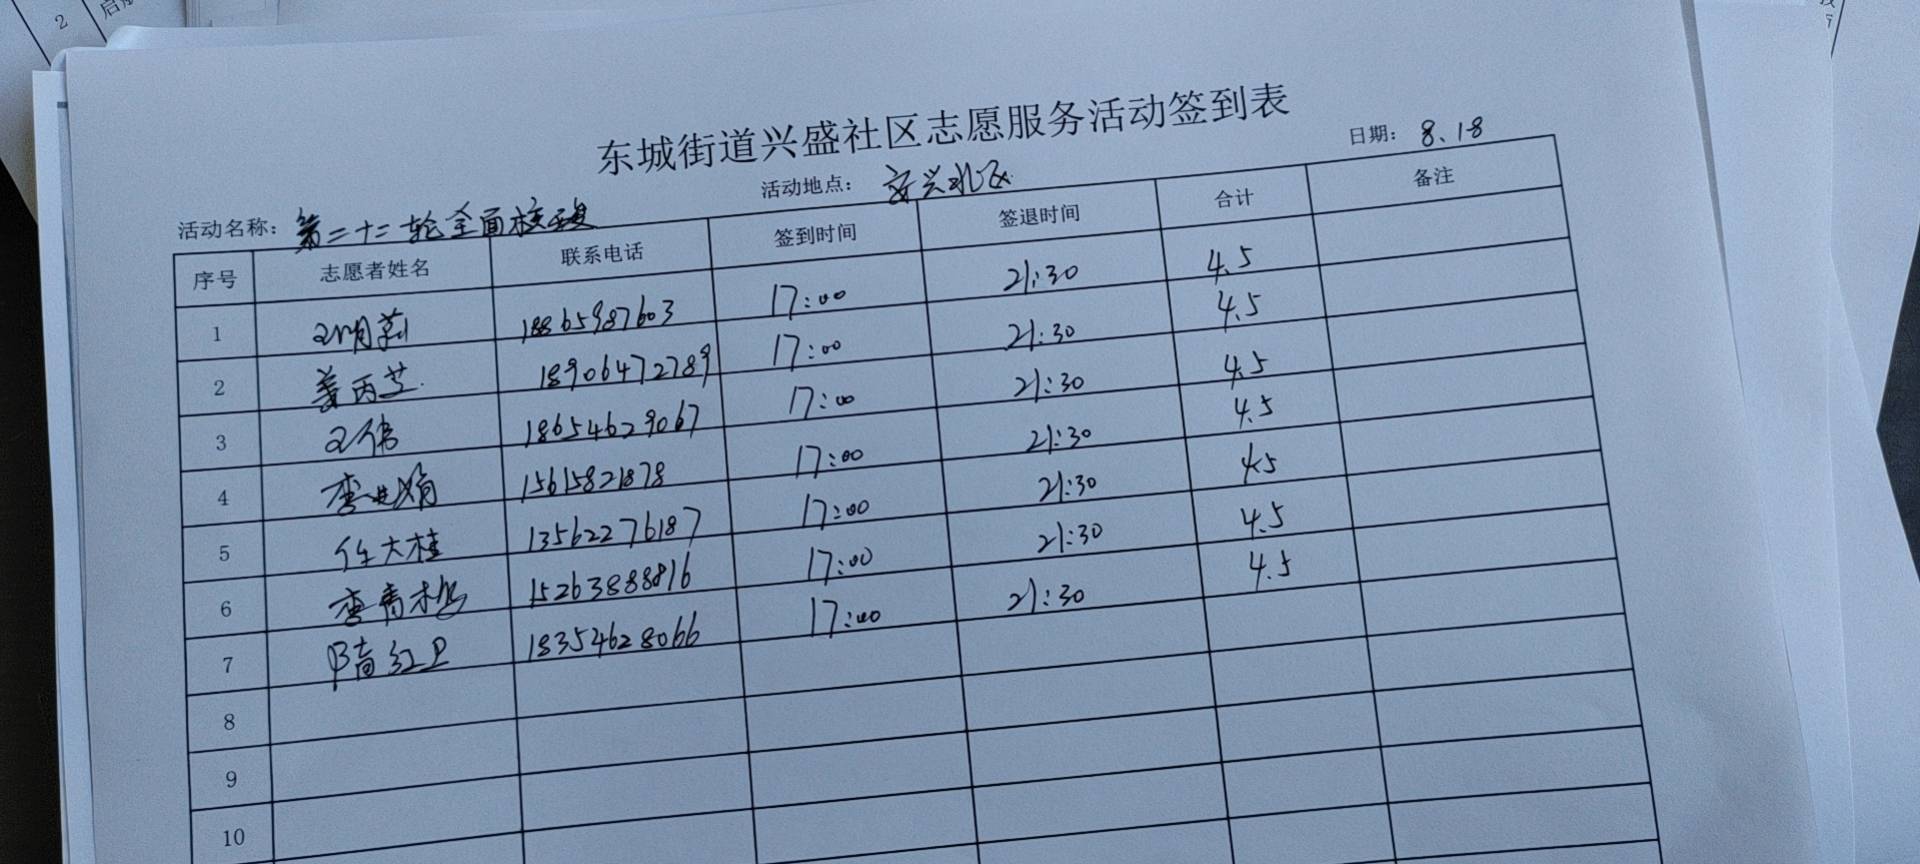 东城街道兴盛社区志愿服务活动签到表
日期: 8.18
活动名称: 第二十二轮全面核酸 活动地点: 安兴北区
序号 志愿者姓名 联系电话 签到时间 签退时间 合计 备注
1 王明莉 18865987603 17:00 21:30 4.5
2 姜丙芝 18906472789 17:00 21:30 4.5
3 王伟 18654629067 17:00 21:30 4.5
4 15615821878 17:00 21:30 4.5
5 任大桂 13562276187 17:00 21:30 4.5
6 15263888816 17:00 21:30 4.5
7 隋红卫 18354628066 17:00 21:30 4.5
8
9
10
2